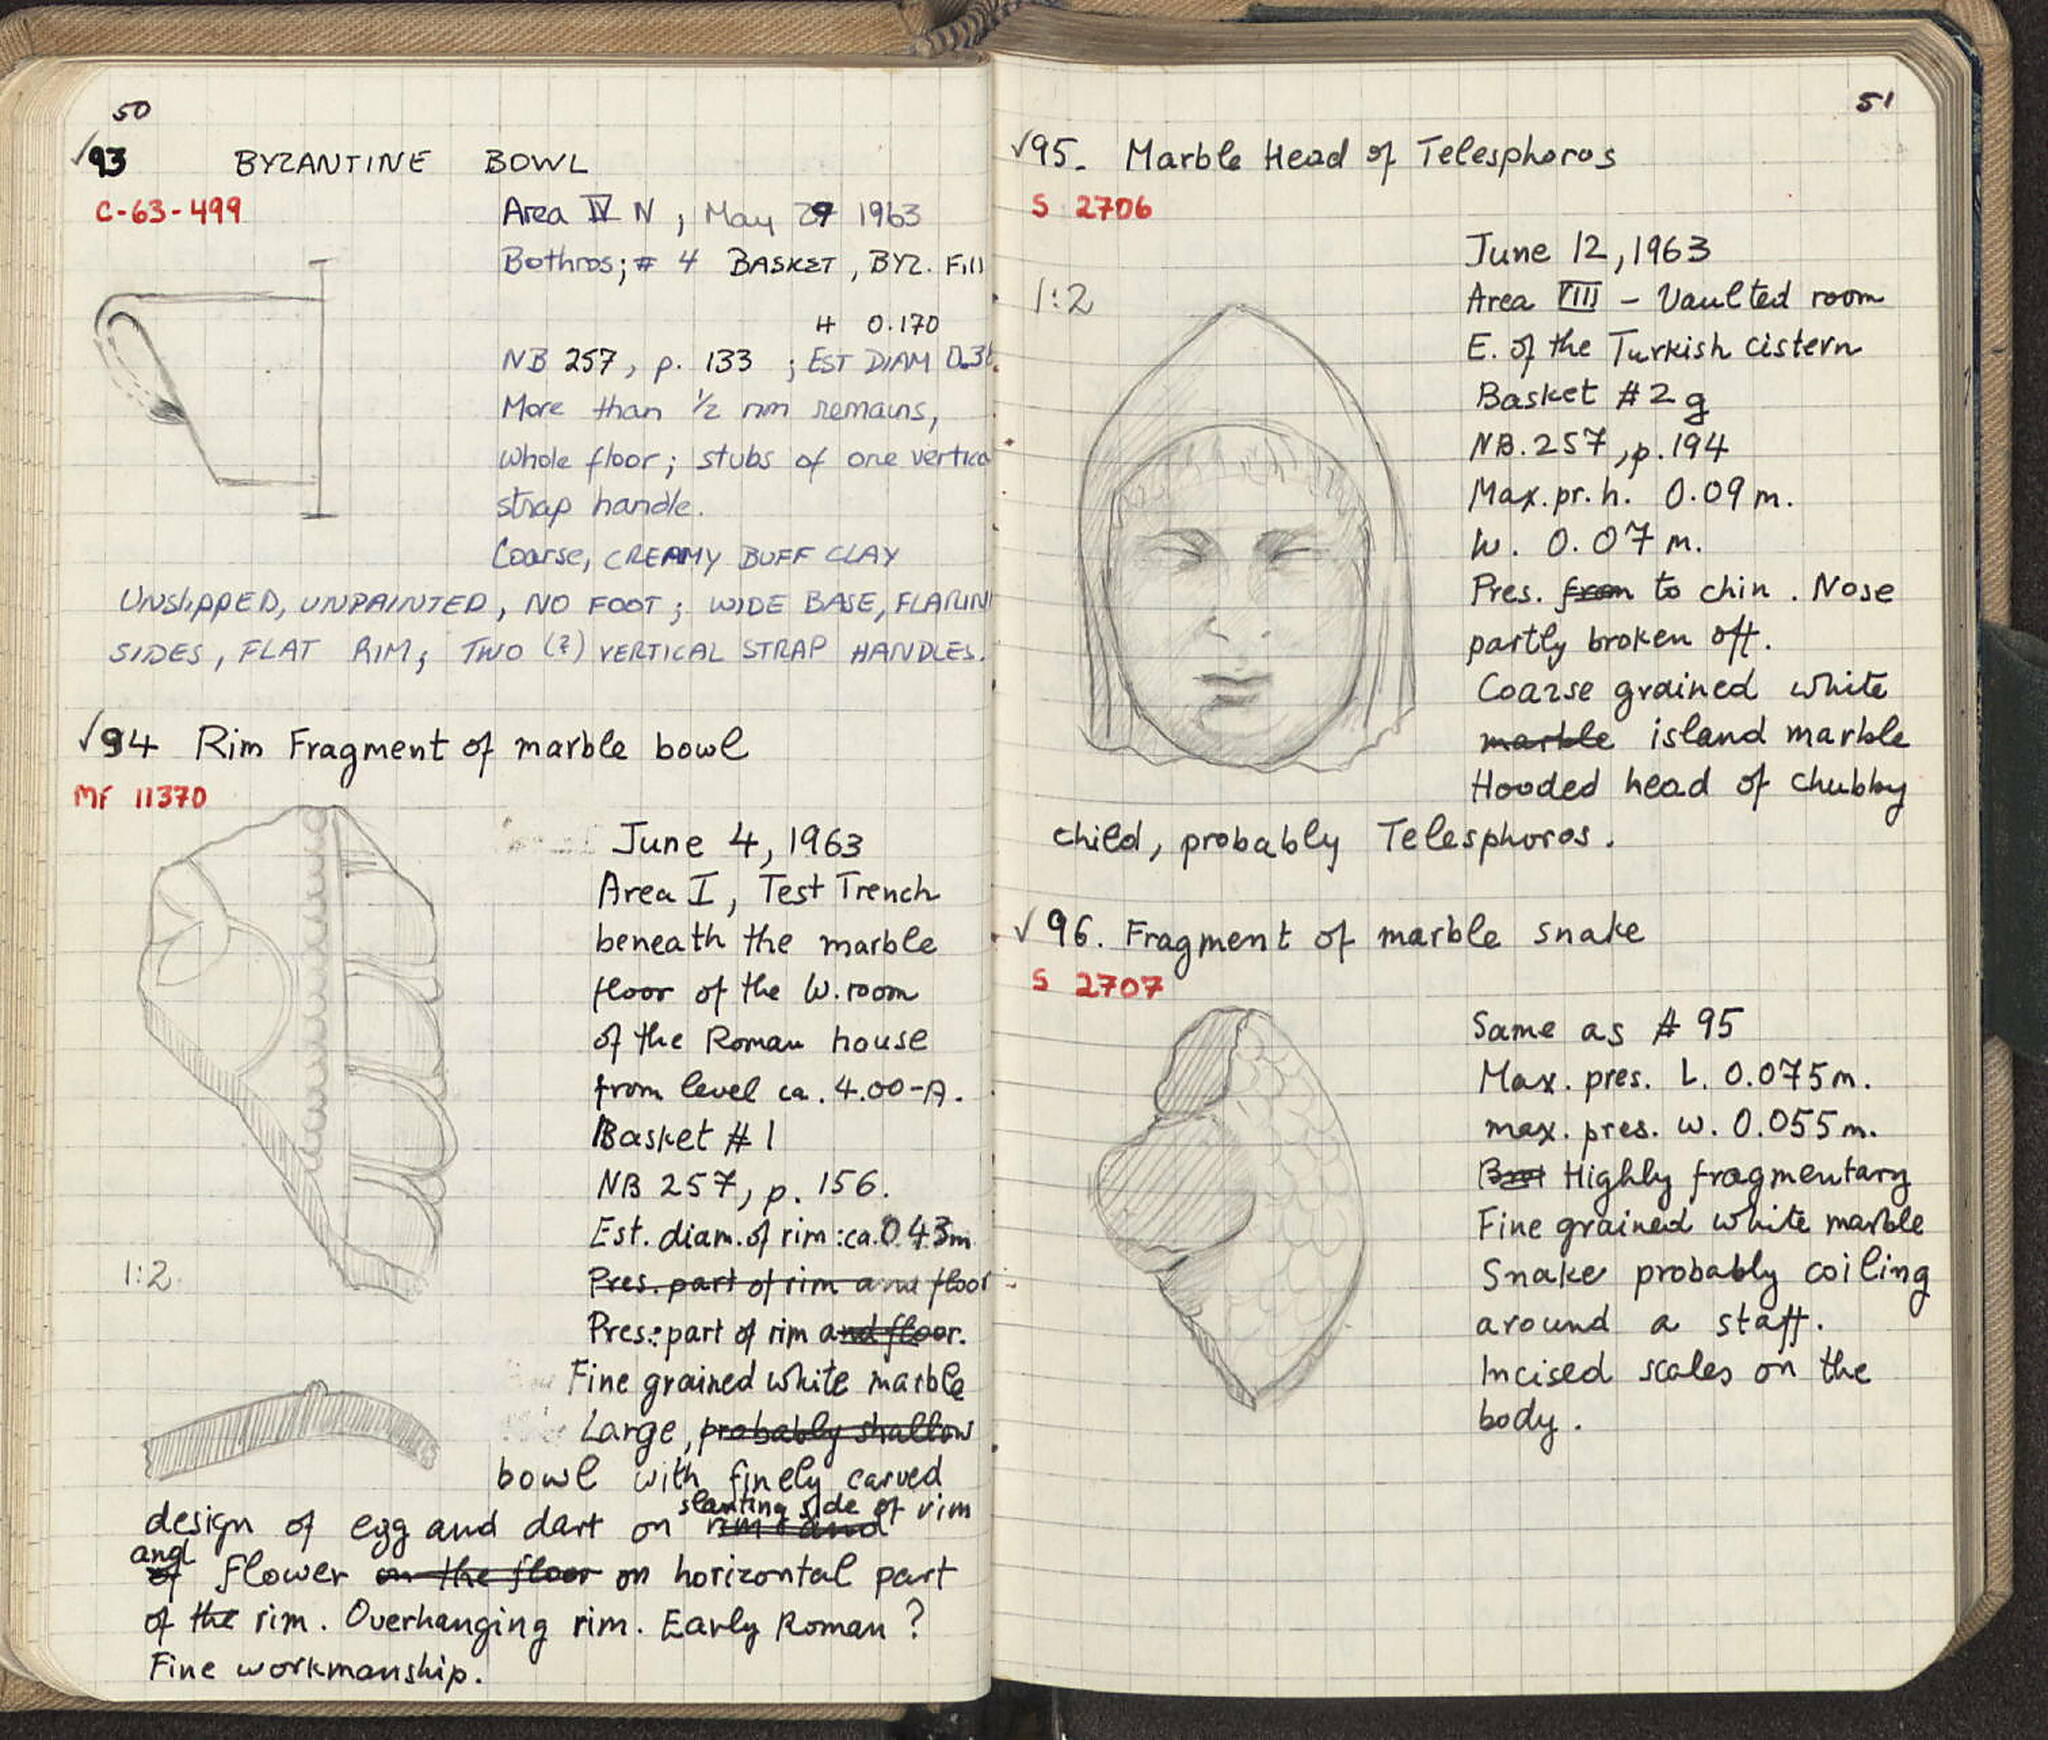 50
√93 BYZANTINE BOWL
C-63-499
Area IV N, May 29 1963
Bothros; # 4 BASKET, BYZ. Fill
H 0.170
NB 257, p. 133 ; EST DIAM
More than 1/2 rim remains,
whole floor; stubs of one
strap handle.
Coarse, CREAMY BUFF CLAY
UNSLIPPED, UNPAINTED, NO FOOT; WIDE BASE, FLARIN
SIDES, FLAT RIM; TWO (?) VERTICAL STRAP HANDLES.
√94 Rim Fragment of marble bowl
MF 11370
June 4, 1963
Area I, Test Trench
beneath the marble
floor of the W. room
of the Roman house
from level ca. 4.00-A.
Basket # 1
NB 257, p. 156.
Est. diam. of rim : ca. 0.43m
1:2
Pres. part of rim and floor
Pres.: part of rim and floor.
Fine grained white marble
Large, probably shallow
bowl with finely carved
slanting side of rim
design of egg and dart on rim and
and
of flower on the floor on horizontal part
of the rim. Overhanging rim. Early Roman ?
Fine workmanship.
51
√95. Marble Head of Telesphoros
S 2706
June 12, 1963
1:2
Area VIII - Vaulted room
E. of the Turkish cistern
Basket # 2 g
NB. 257, p. 194
Max. pr. h. 0.09 m.
W. 0.07 m.
Pres. from to chin. Nose
partly broken off.
Coarse grained white
marble island marble
Hooded head of chubby
child, probably Telesphoros.
√96. Fragment of marble snake
S 2707
Same as # 95
Max. pres. L. 0.075 m.
max. pres. w. 0.055 m.
Highly fragmentary
Fine grained white marble
Snake probably coiling
around a staff.
Incised scales on the
body.